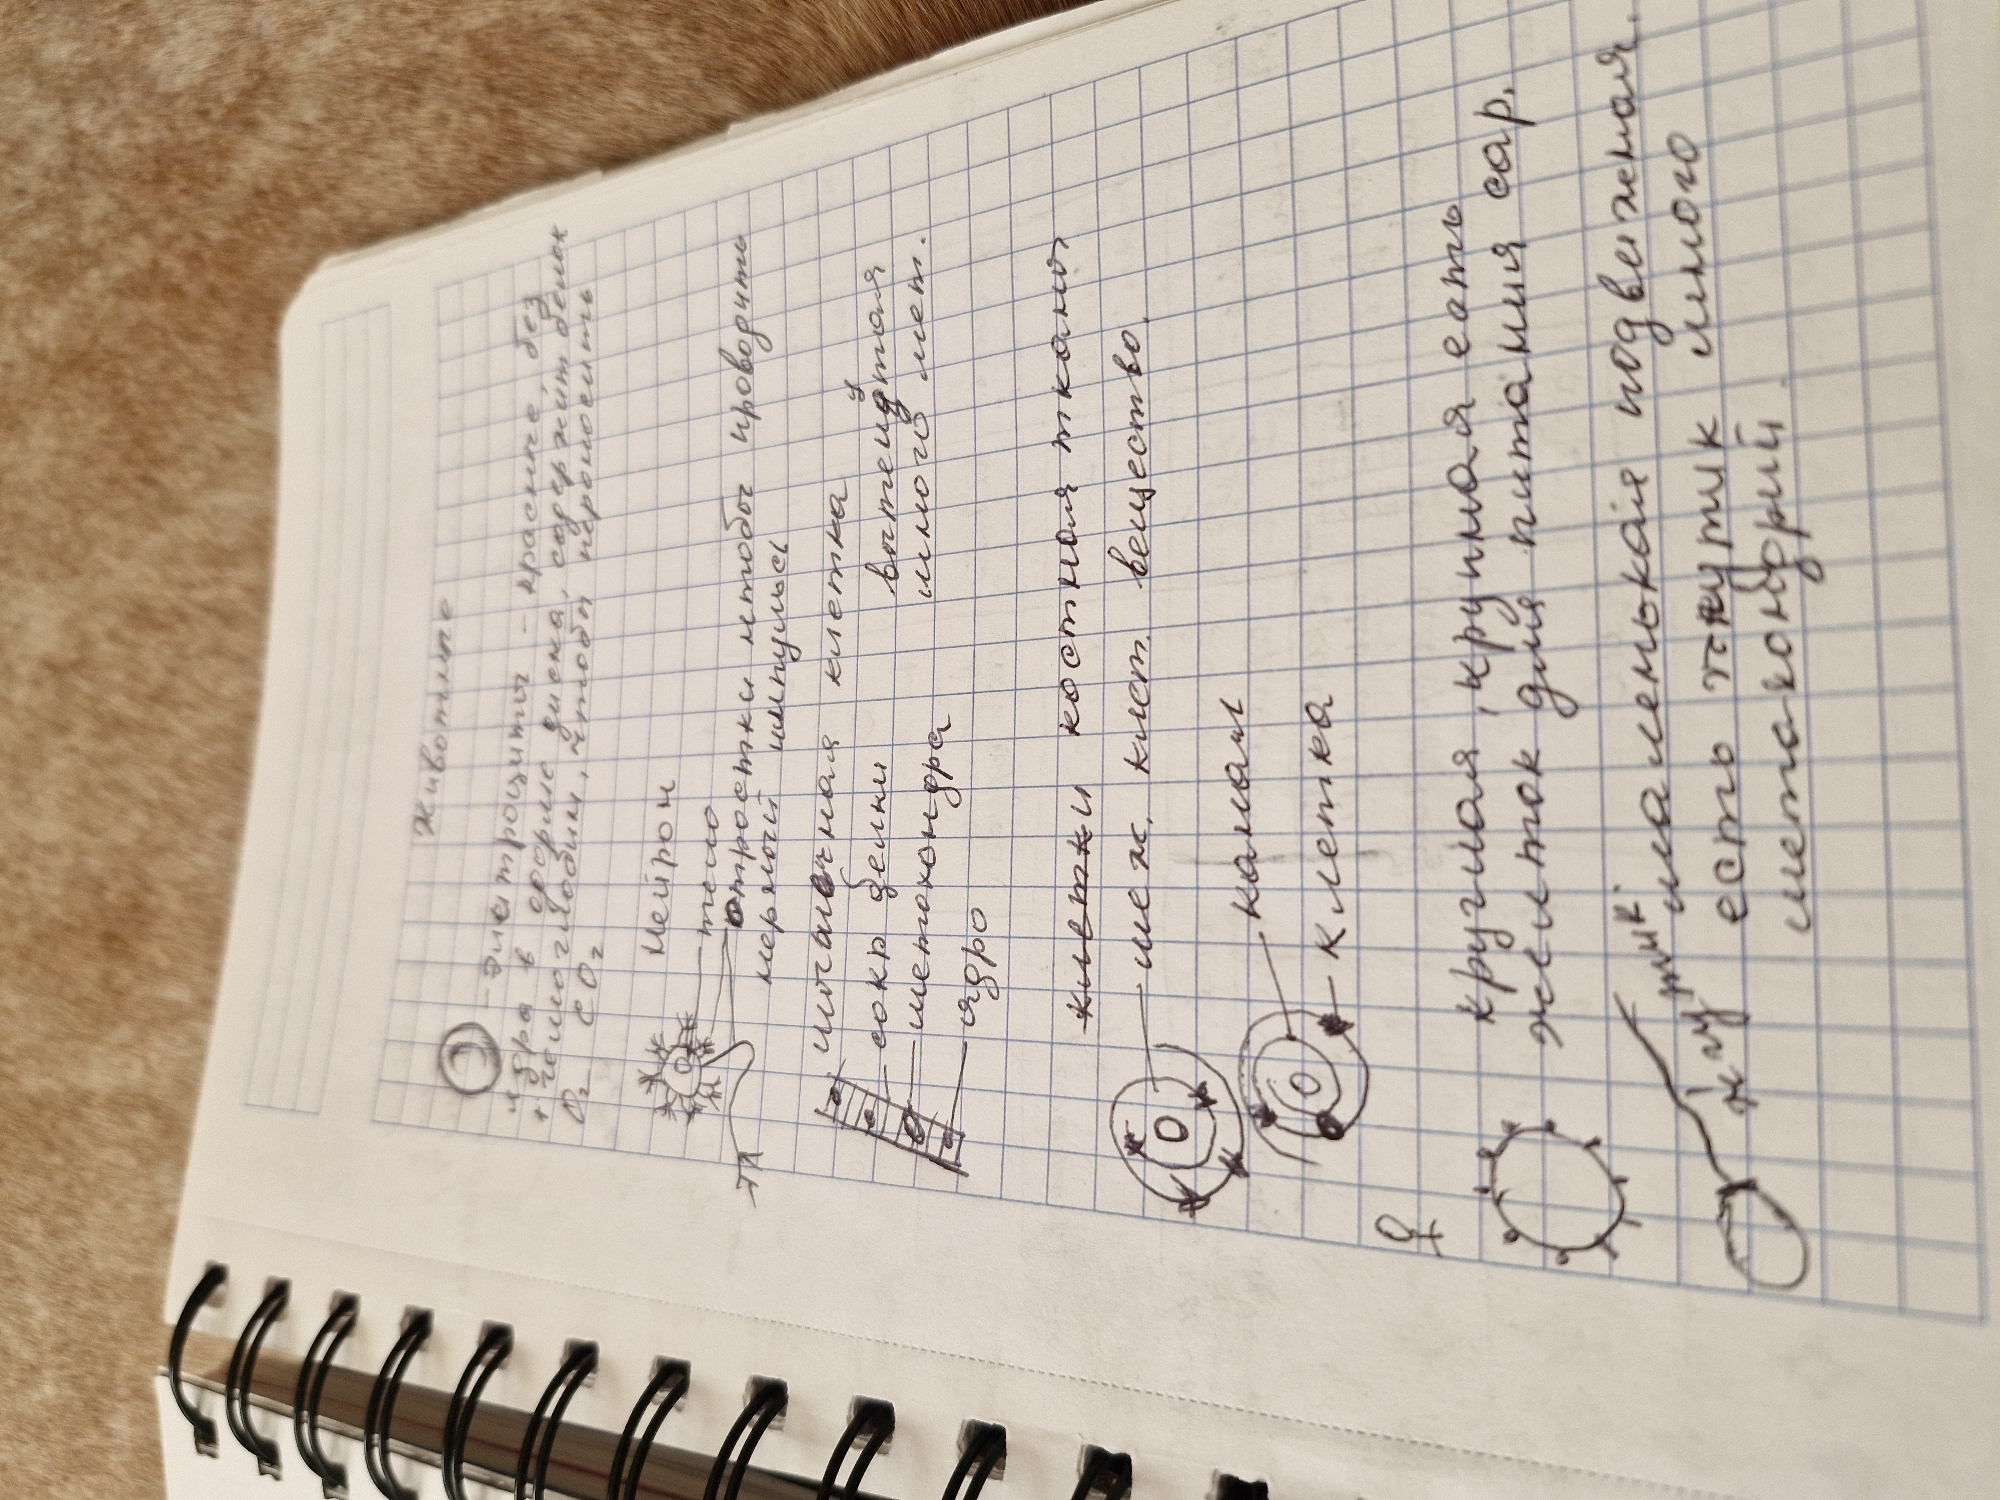 Животные
- эритроциты - красные, без
ядра в форме диска, содержит белок
+ гемоглобин, чтобы переносить
O₂ CO₂
нейрон
тело
отростки чтобы проводить
нервный импульсы
мышечная клетка
сокр белки вытянутая
митохондра много мет.
ядро
клетки костная ткань
меж. клет. вещество
каналы
клетка
♀
круглая, крупная есть
желток для питания зар.
маленькая подвижная.
жгутик
есть жгутик много
метакондрий.